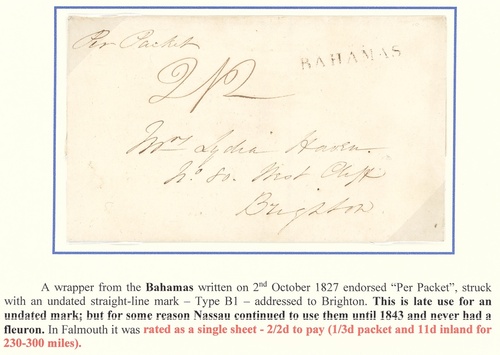 Per Packet
BAHAMAS
2/2
Mrs Lydia Haven
No 80. West Cliff
Brighton.
A wrapper from the Bahamas written on 2nd October 1827 endorsed “Per Packet”, struck
with an undated straight-line mark – Type B1 – addressed to Brighton. This is late use for an
undated mark; but for some reason Nassau continued to use them until 1843 and never had a
fleuron. In Falmouth it was rated as a single sheet - 2/2d to pay (1/3d packet and 11d inland for
230-300 miles).